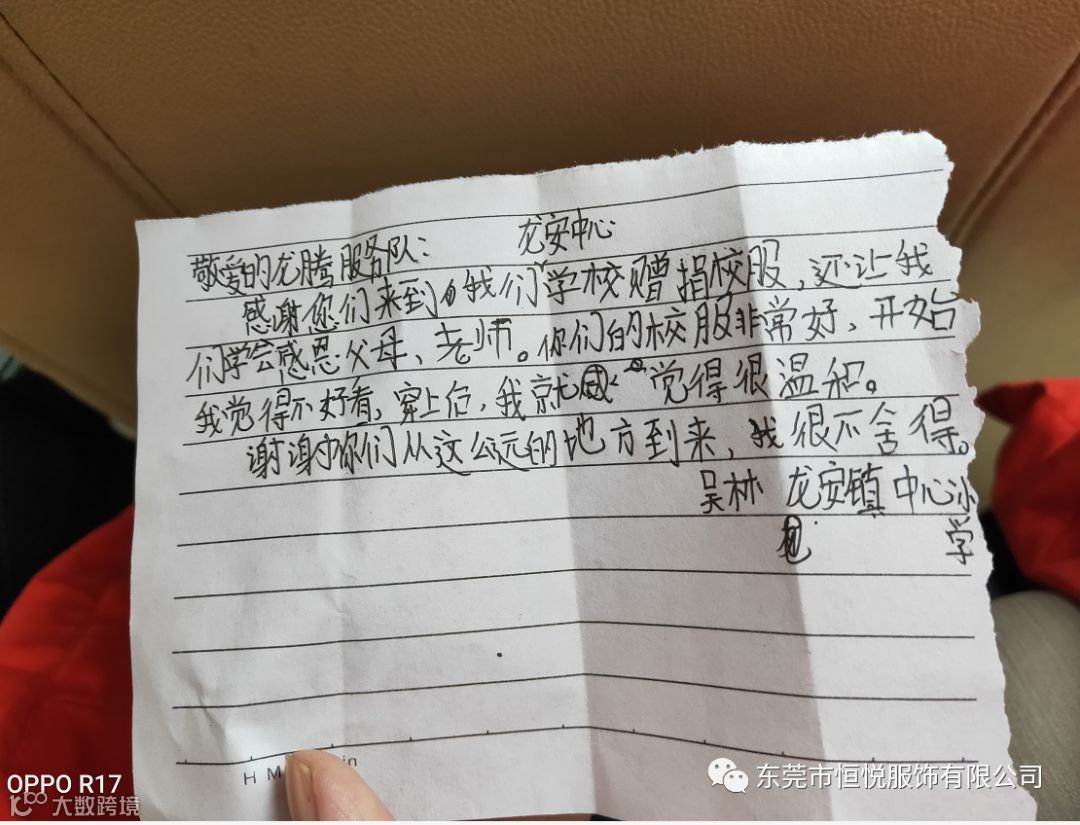 龙安中心
敬爱的龙腾服务队：
感谢你们来到我们学校赠捐校服，还让我
们学会感恩父母、老师。你们的校服非常好，开始
我觉得不好看，穿上后，我就感觉得很温和。
谢谢你们从这么远的地方到来，我很不舍得。
吴林 龙安镇中心小
学
H M
in
OPPO R17
大数跨境
东莞市恒悦服饰有限公司